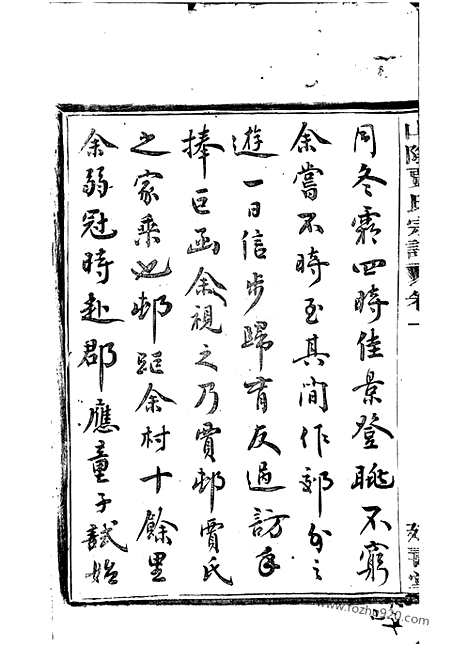 同冬霧四時佳景登眺不窮
余嘗不時至其間作郊外之
遊一日信步歸有友過訪手
捧巨函余視之乃賈邨賈氏
之家乘也邨距余村十餘里
余弱冠時赴郡應童子試始
山陰賈氏宗譜 卷一
www.fozhu920.com